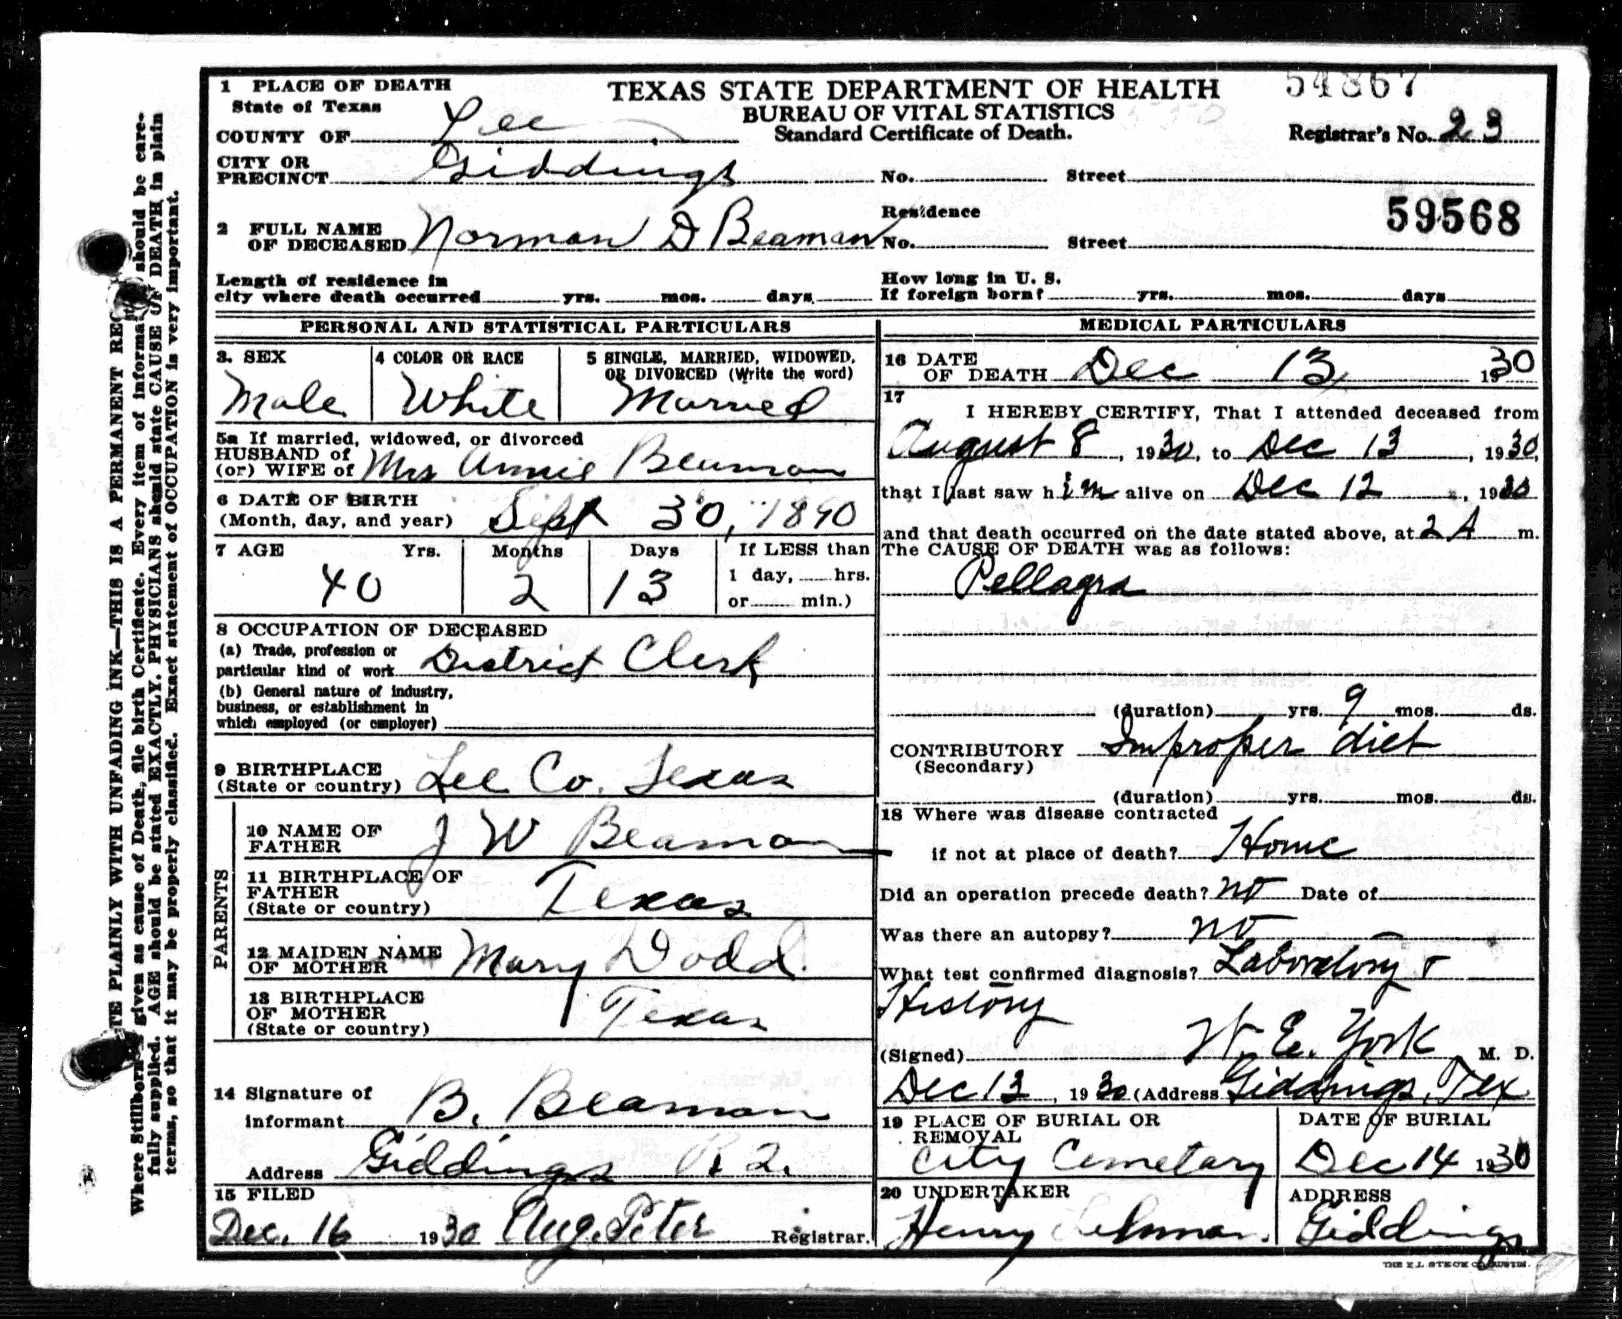 1 PLACE OF DEATH
State of Texas
COUNTY OF Lee
CITY OR PRECINCT Giddings
TEXAS STATE DEPARTMENT OF HEALTH
BUREAU OF VITAL STATISTICS
Standard Certificate of Death.
54867
Registrar's No. 23
No. Street
59568
2 FULL NAME OF DECEASED Norman D Beaman
Residence No. Street
Length of residence in
city where death occurred yrs. mos. days.
How long in U. S.
If foreign born? yrs. mos. days
PERSONAL AND STATISTICAL PARTICULARS
3. SEX
Male
4 COLOR OR RACE
White
5 SINGLE, MARRIED, WIDOWED,
OR DIVORCED (Write the word)
Married
5a If married, widowed, or divorced
HUSBAND of
(or) WIFE of Mrs Annie Beaman
6 DATE OF BIRTH
(Month, day, and year) Sept 30, 1890
7 AGE Yrs. Months Days
40 2 13
If LESS than
1 day, hrs.
or min.)
8 OCCUPATION OF DECEASED
(a) Trade, profession or
particular kind of work District Clerk
(b) General nature of industry,
business, or establishment in
which employed (or employer)
9 BIRTHPLACE
(State or country) Lee Co. Texas
PARENTS
10 NAME OF
FATHER J W Beaman
11 BIRTHPLACE OF
FATHER
(State or country) Texas
12 MAIDEN NAME
OF MOTHER Mary Dodd.
13 BIRTHPLACE
OF MOTHER
(State or country) Texas
14 Signature of
informant B. Beaman
Address Giddings R 2.
15 FILED
Dec. 16 1930 Aug. Peter Registrar.
MEDICAL PARTICULARS
16 DATE
OF DEATH Dec 13, 1930
17
I HEREBY CERTIFY, That I attended deceased from
August 8, 1930, to Dec 13, 1930,
that I last saw him alive on Dec 12, 1930
and that death occurred on the date stated above, at 2 A m.
The CAUSE OF DEATH was as follows:
Pellagra
(duration) yrs. 9 mos. ds.
CONTRIBUTORY Improper diet
(Secondary)
(duration) yrs. mos. ds.
18 Where was disease contracted
if not at place of death? Home
Did an operation precede death? no Date of
Was there an autopsy? no
What test confirmed diagnosis? Laboratory &
History
(Signed) W. E. York M. D.
Dec 13, 1930 (Address Giddings, Tex
19 PLACE OF BURIAL OR
REMOVAL
City Cemetary
DATE OF BURIAL
Dec 14 1930
20 UNDERTAKER
Henry Lehman.
ADDRESS
Giddings
THE E.L. STECK CO. AUSTIN.
TE PLAINLY WITH UNFADING INK—THIS IS A PERMANENT RE
Where Stillborn given as cause of Death, file birth Certificate. Every item of informa should be care-
fully supplied. AGE should be stated EXACTLY. PHYSICIANS should state CAUSE OF DEATH in plain
terms, so that it may be properly classified. Exact statement of OCCUPATION is very important.